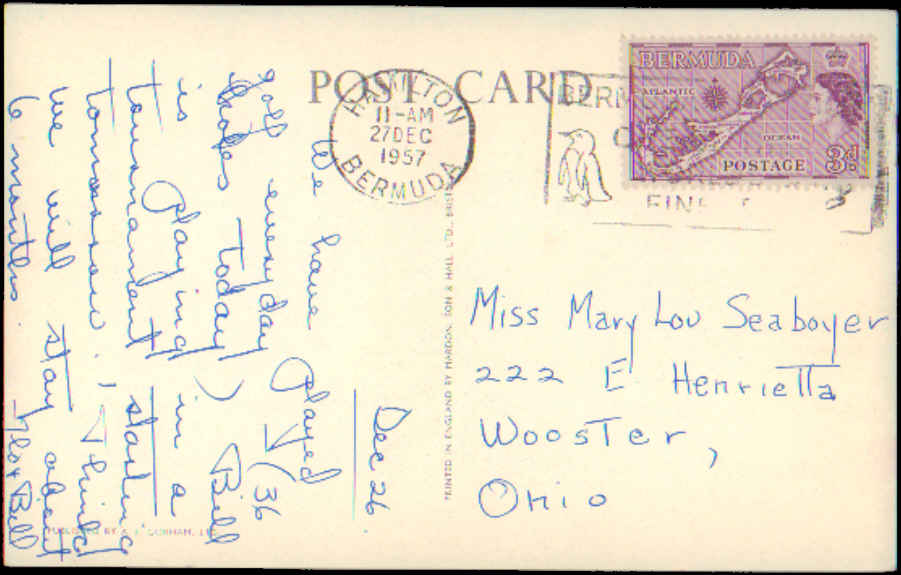 POST CARD
HAMILTON
11-AM
27 DEC
1957
BERMUDA
BERMUDA
ATLANTIC
OCEAN
POSTAGE
3d
Dec 26
We have played
golf every day (36
holes today) Bill
is playing in a
tournament starting
tomorrow. I think
we will stay about
6 months.
Miss Mary Lou Seaboyer
222 E Henrietta
Wooster,
Ohio
PRINTED IN ENGLAND BY MARDON, SON & HALL, LTD.,
PUBLISHED BY